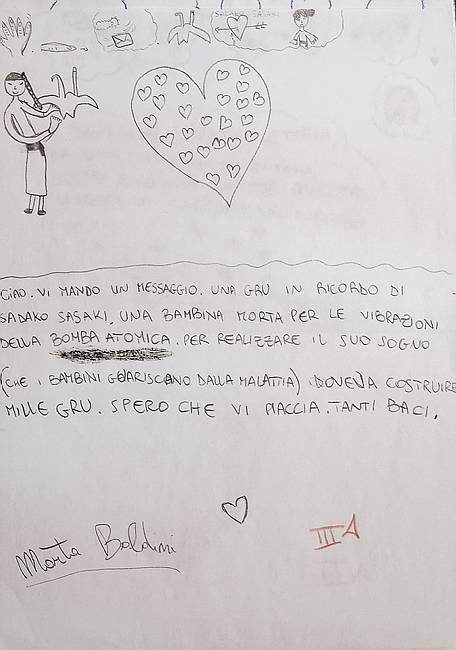 SADAKO SASAKI
CIAO. VI MANDO UN MESSAGGIO. UNA GRU IN RICORDO DI
SADAKO SASAKI, UNA BAMBINA MORTA PER LE VIBRAZIONI
DELLA BOMBA ATOMICA. PER REALIZZARE IL SUO SOGNO
(CHE I BAMBINI GUARISCANO DALLA MALATTIA) DOVEVA COSTRUIRE
MILLE GRU. SPERO CHE VI PIACCIA. TANTI BACI,
Marta Baldini
III A